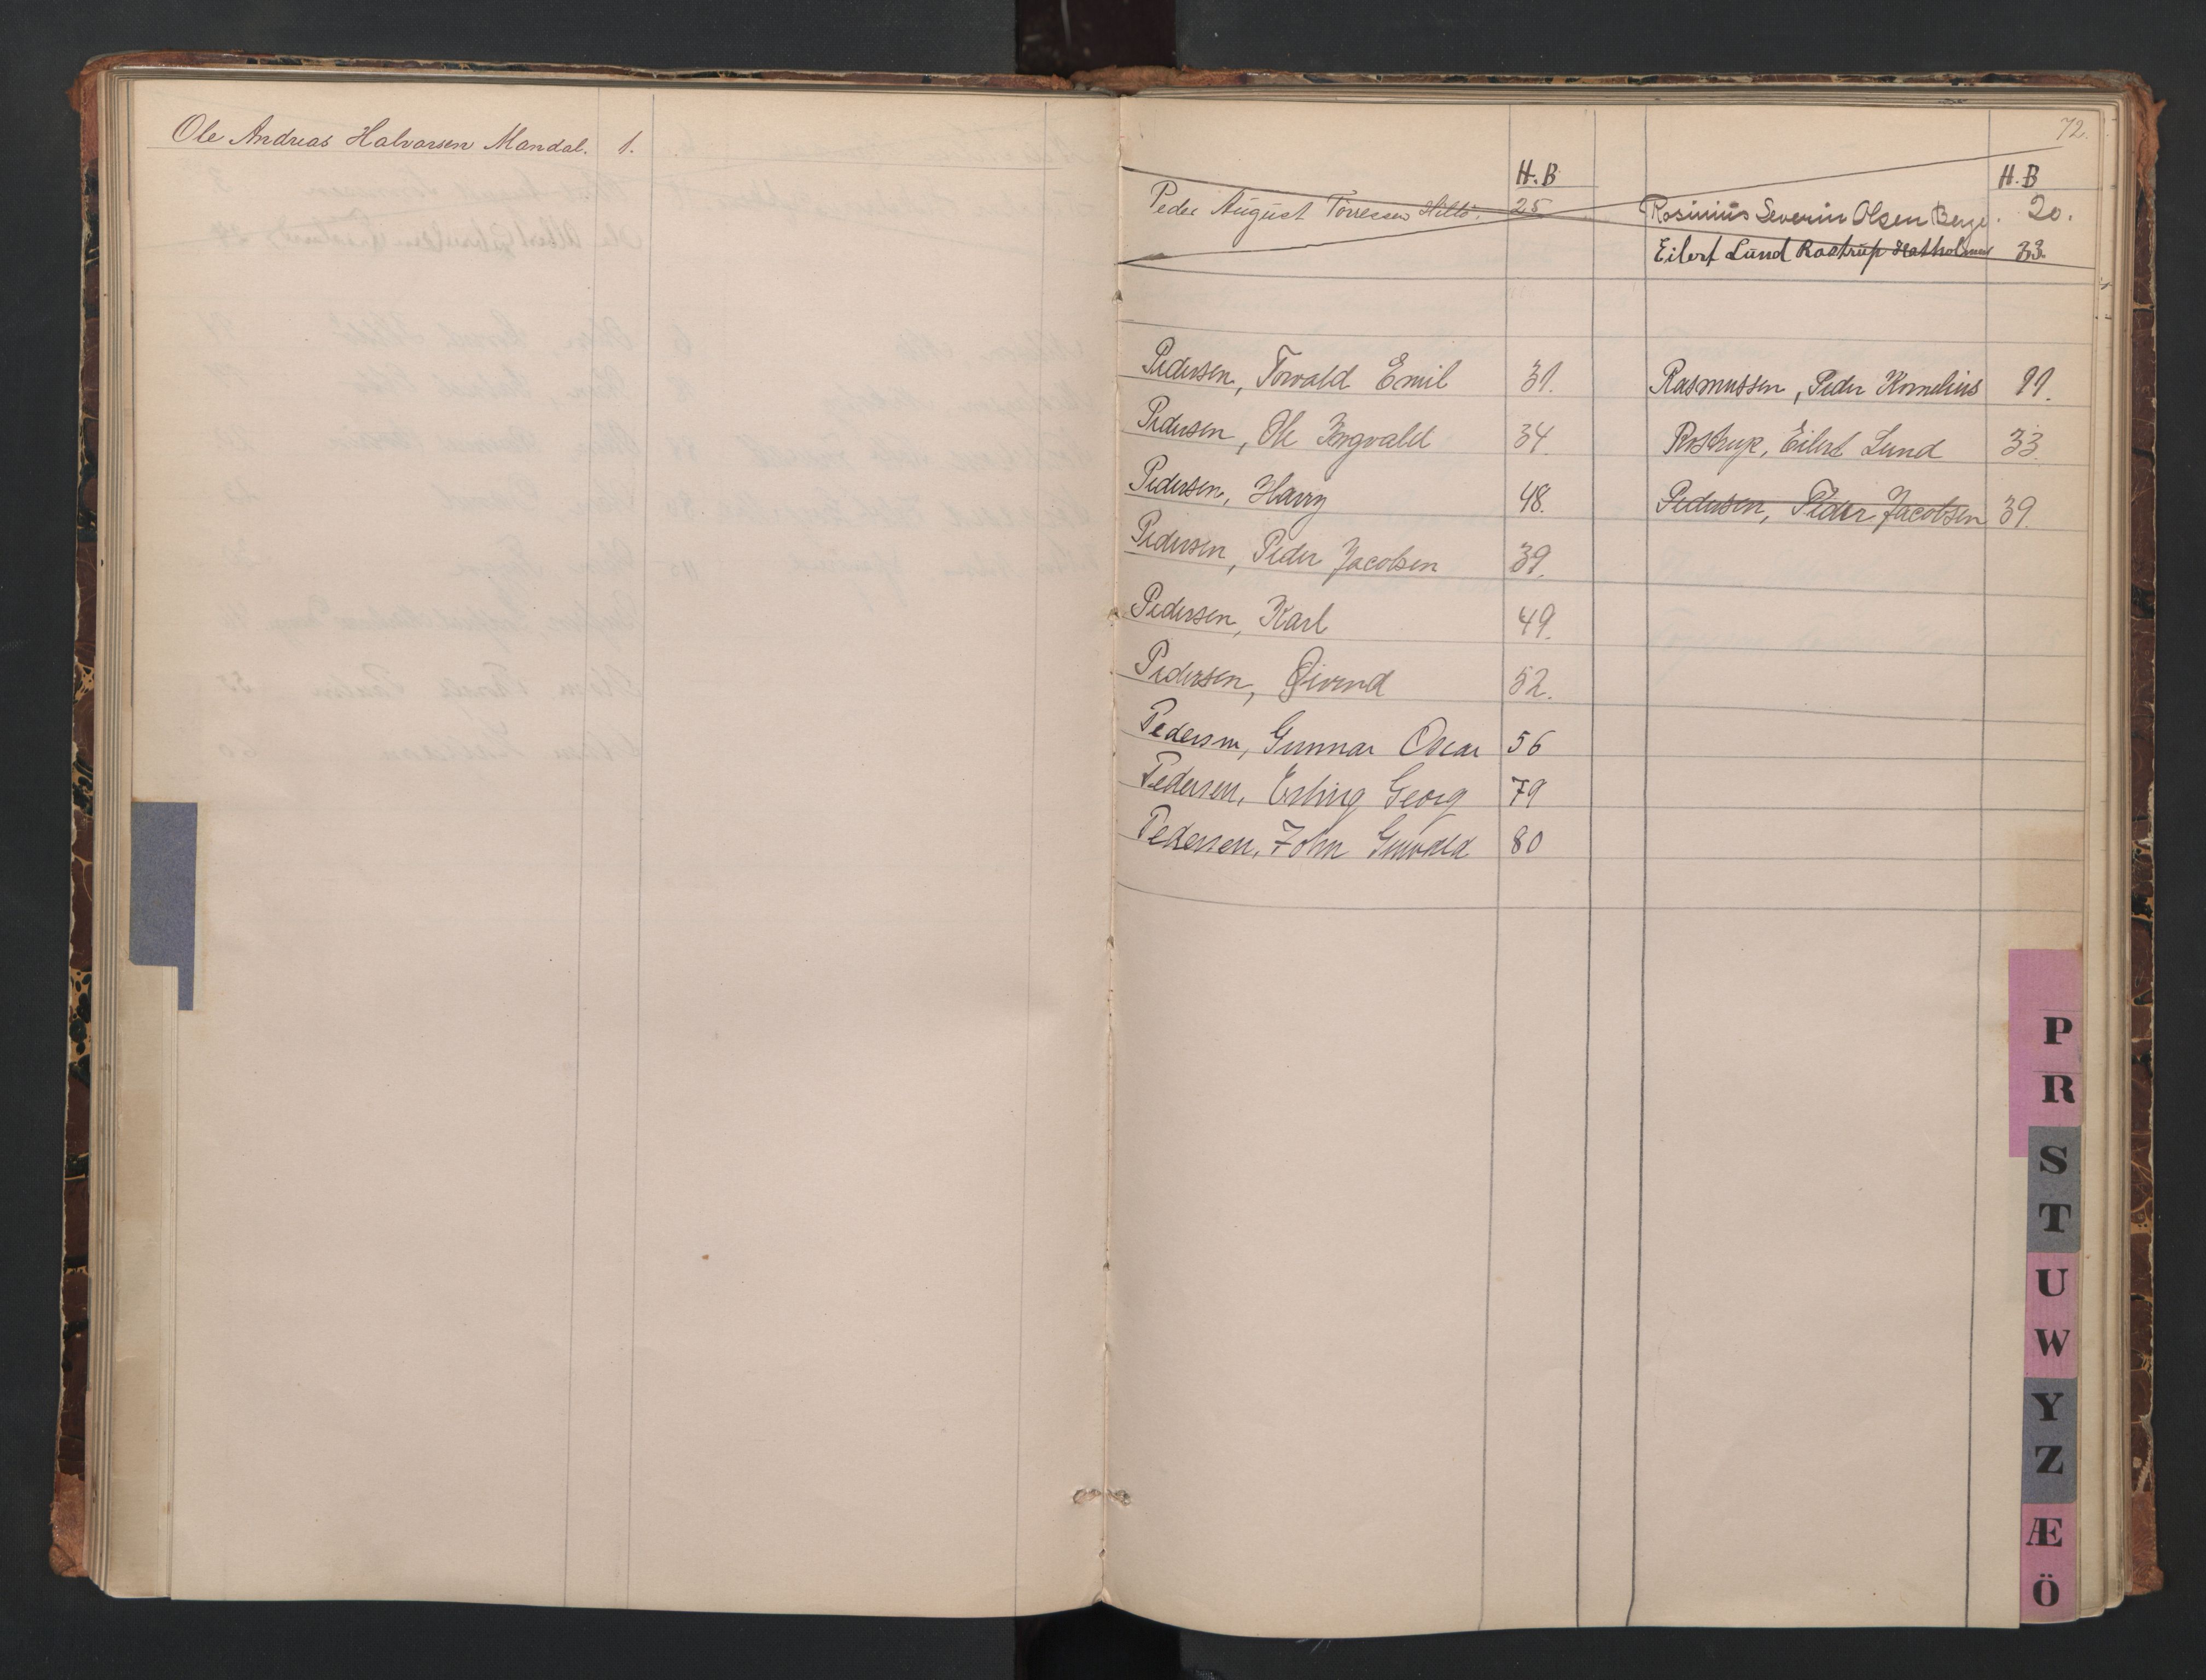 Ole Andreas Halvorsen Mandal. 1.
72.
H. B
Peder August Törressen Hillö. 25
Pedersen, Torvald Emil 31.
Pedersen, Ole Yngvald 34.
Pedersen, Harry 48.
Pedersen, Peder Jacobsen 39.
Pedersen, Karl 49.
Pedersen, Øivend 52.
Pedersen, Gunnar Oscar 56
Pedersen, Erling Georg 79
Pedersen, John 80
H. B
Rosinius Severin Olsen Berge. 20.
Eilert Lund Rostrup Hatholmen 33.
Rasmussen, Peder Kornelius 11.
Rostrup, Eilert Lund 33.
Pedersen, Peder Jacobsen 39.
P
R
S
T
U
W
Y
Z
Æ
Ö